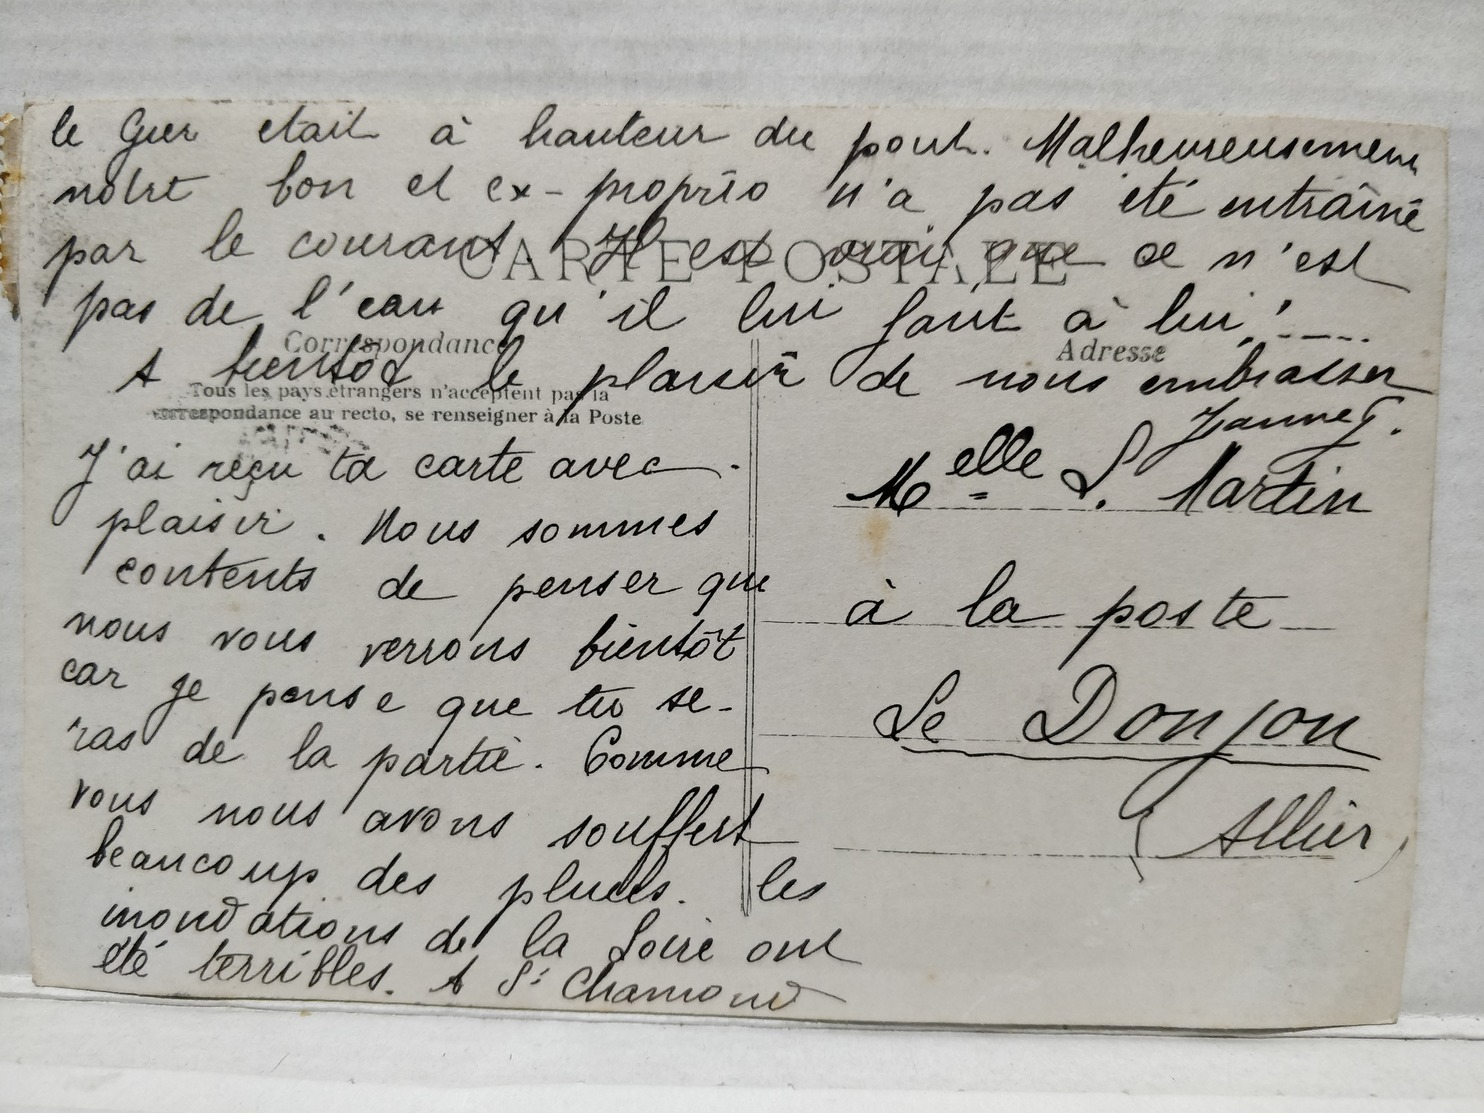 le Gier etait à hauteur du pont. Malheureusement
notre bon et ex-proprio n'a pas été entraîné
par le courant. Il est vrai que ce n'est
pas de l'eau qu'il lui faut à lui!....
A bientôt le plaisir de nous embrasser
CARTE POSTALE
Correspondance
Tous les pays étrangers n'acceptent pas la
correspondance au recto, se renseigner à la Poste
J'ai reçu ta carte avec
plaisir. Nous sommes
contents de penser que
nous vous verrons bientôt
car je pense que tu se-
ras de la partie. Comme
vous nous avons souffert
beaucoup des pluies. les
inondations de la Loire ont
été terribles. A St Chamond
Adresse
Melle S. Martin
à la poste
Le Donjon
(Allier)